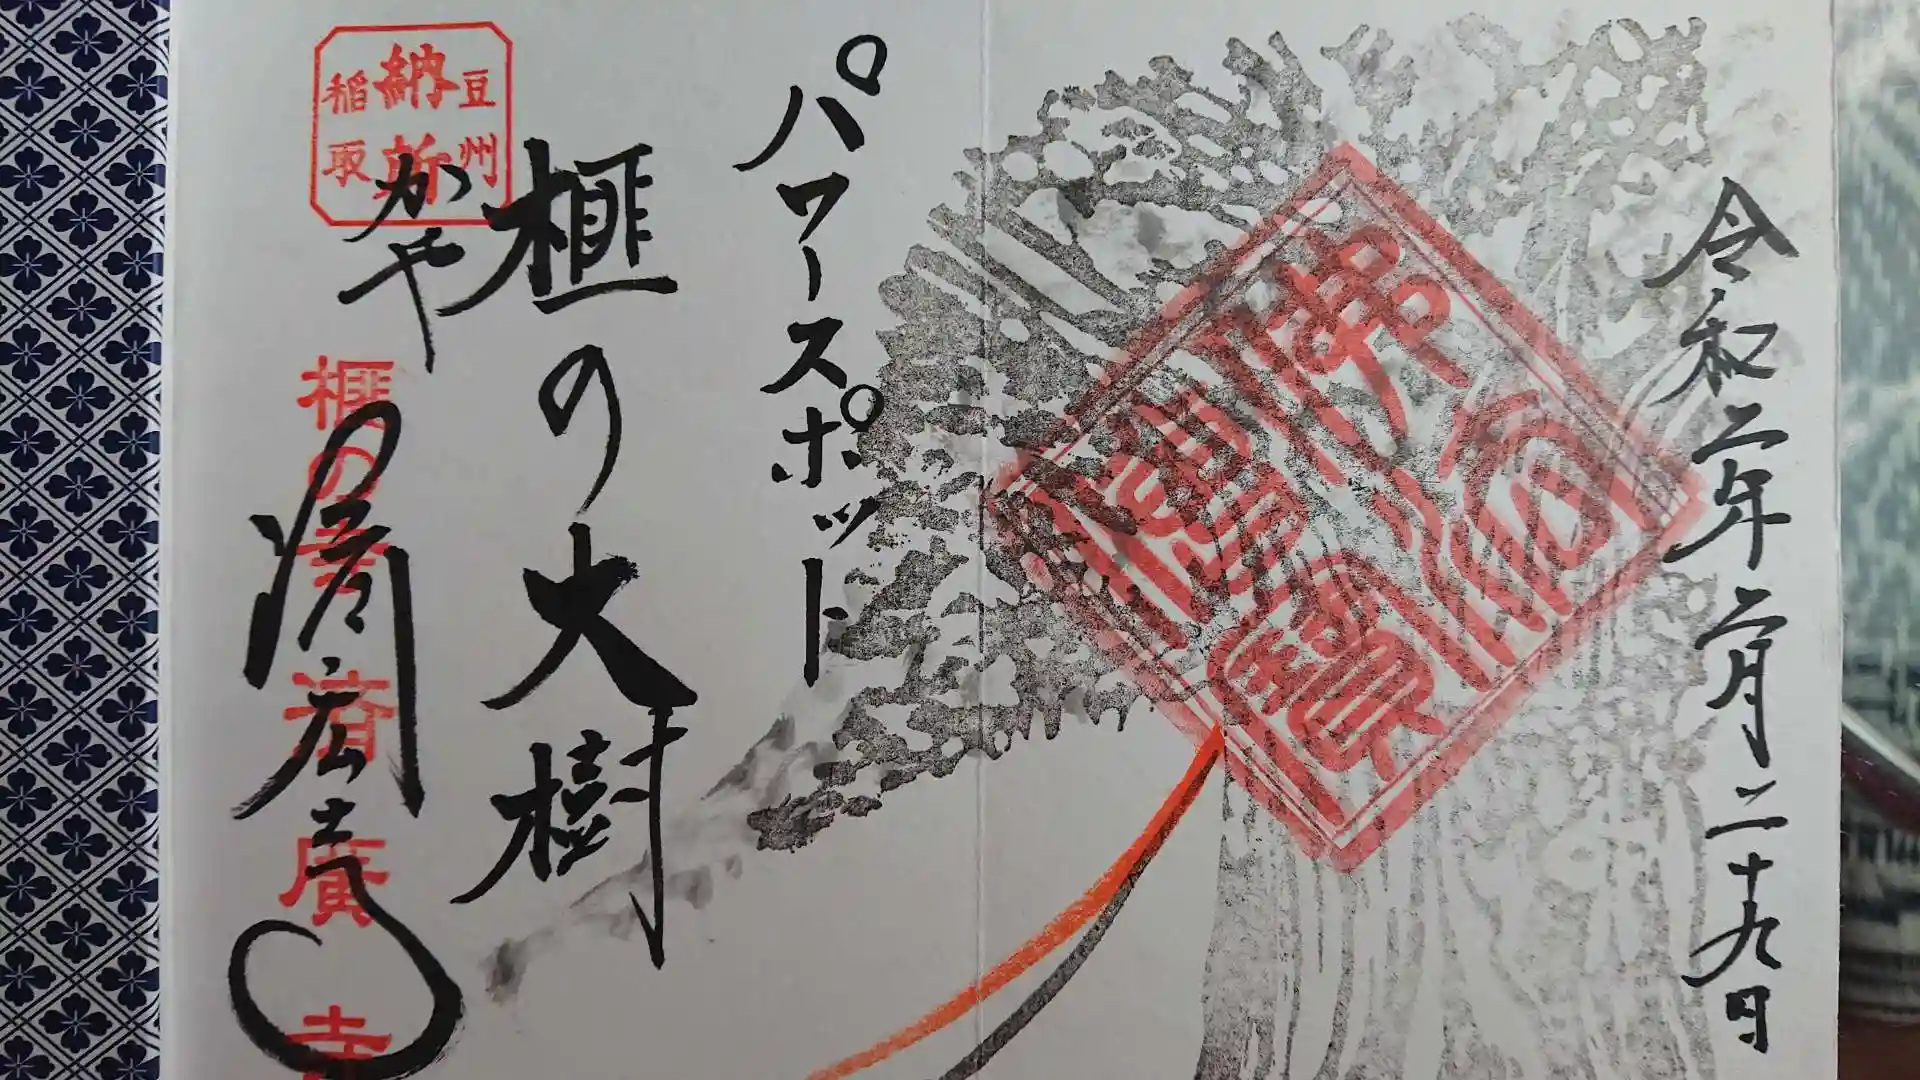 令和二年二月二十九日
パワースポット
榧の大樹
かや
濟広寺
豆州
納
稲取
榧の寺
済廣寺